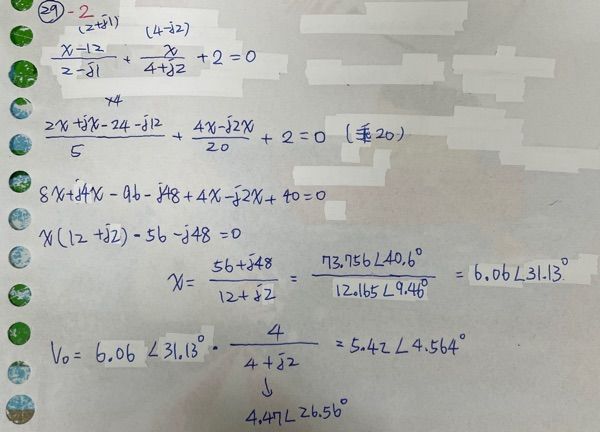 29 - 2
(2+j1) (4-j2)
x-12 / 2-j1 + x / 4+j2 + 2 = 0
x4
2x+jx-24-j12 / 5 + 4x-j2x / 20 + 2 = 0 (乘20)
8x+j4x-96-j48+4x-j2x+40=0
x(12+j2)-56-j48=0
x = 56+j48 / 12+j2 = 73.756∠40.6° / 12.165∠9.46° = 6.06∠31.13°
Vo = 6.06∠31.13° · 4 / 4+j2 = 5.42∠4.564°
↓
4.47∠26.56°